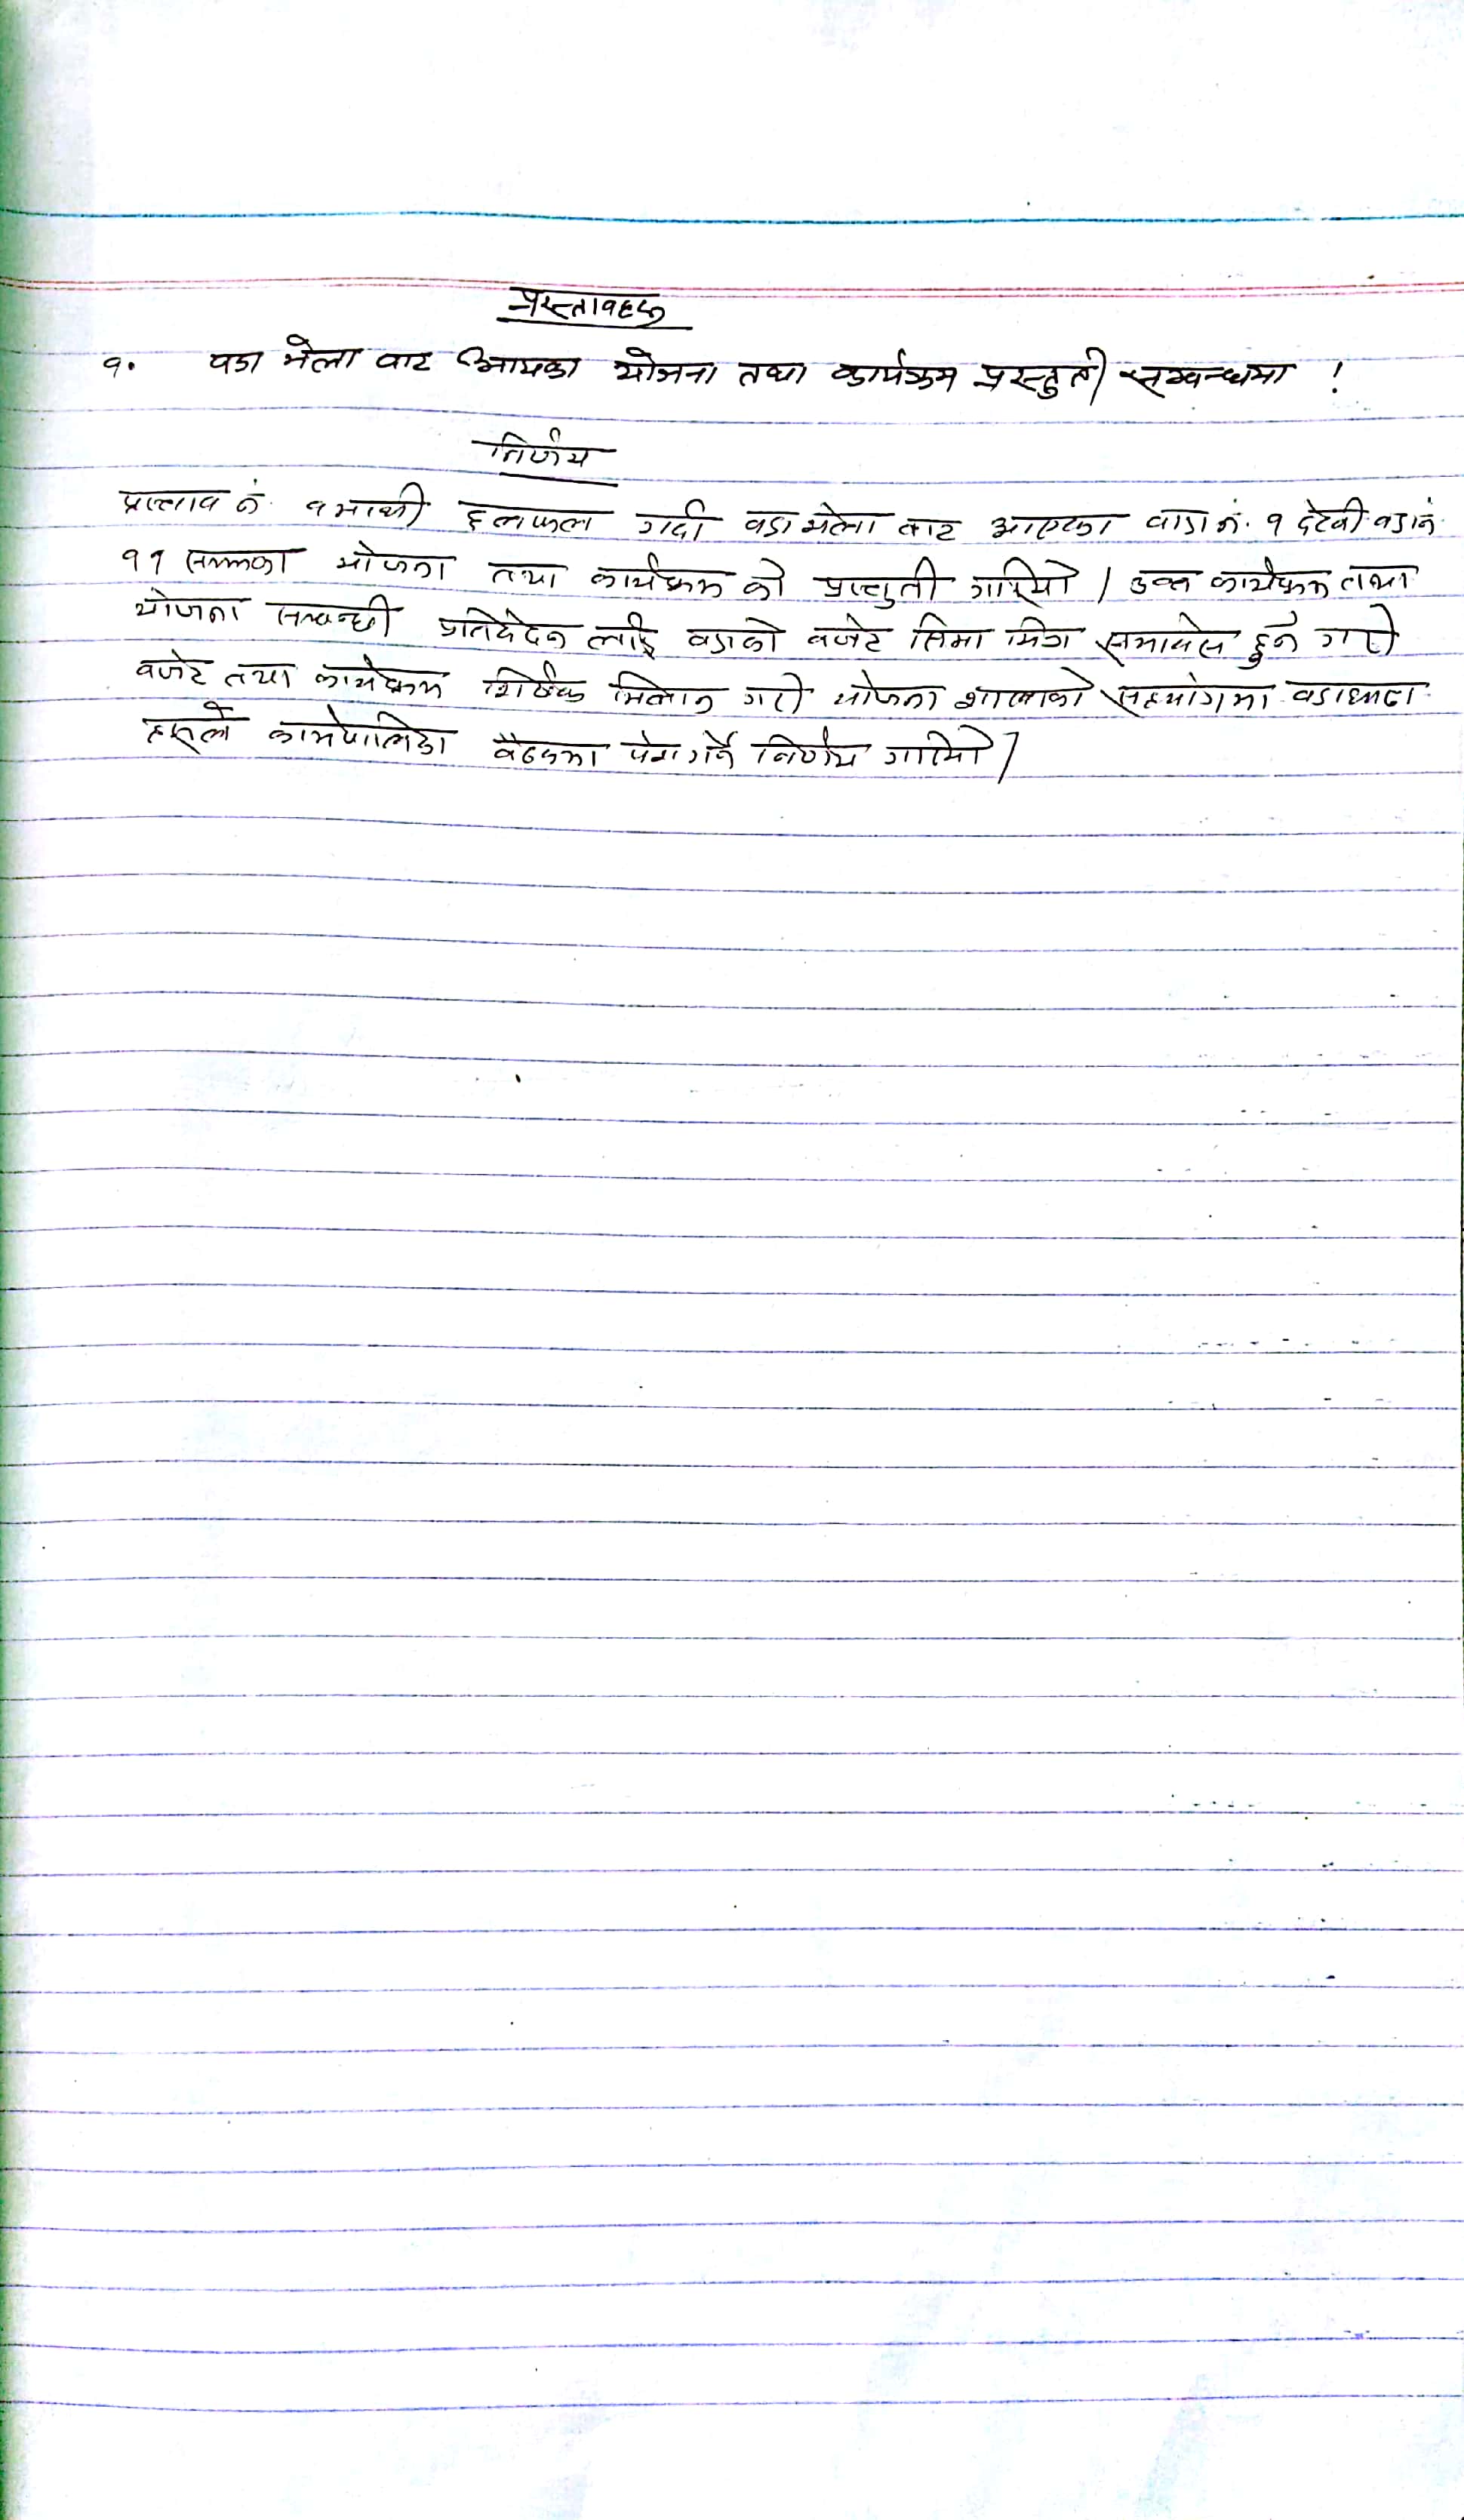 प्रस्तावहरु
१. वडा भेला वाट आयका योजना तथा कार्यक्रम प्रस्तुती सम्वन्धमा !
निर्णय
प्रस्ताव नं. १ माथी छलफल गर्दा वडा भेला वाट आएका वाडा नं. १ देखी वडा नं.
११ सम्मका योजना तथा कार्यक्रम को प्रस्तुती गरियो / उक्त कार्यक्रम तथा
योजना सम्वन्धी प्रतिवेदन लाई वडाको वजेट सिमा भित्र समावेस हुने गरी
वजेट तथा कार्यक्रम शिर्षक मिलान गरी योजना शाखाको सहयोगमा वडाध्यक्ष
हरूले कार्यपालिका वैठकमा पेश गर्ने निर्णय गरियो /